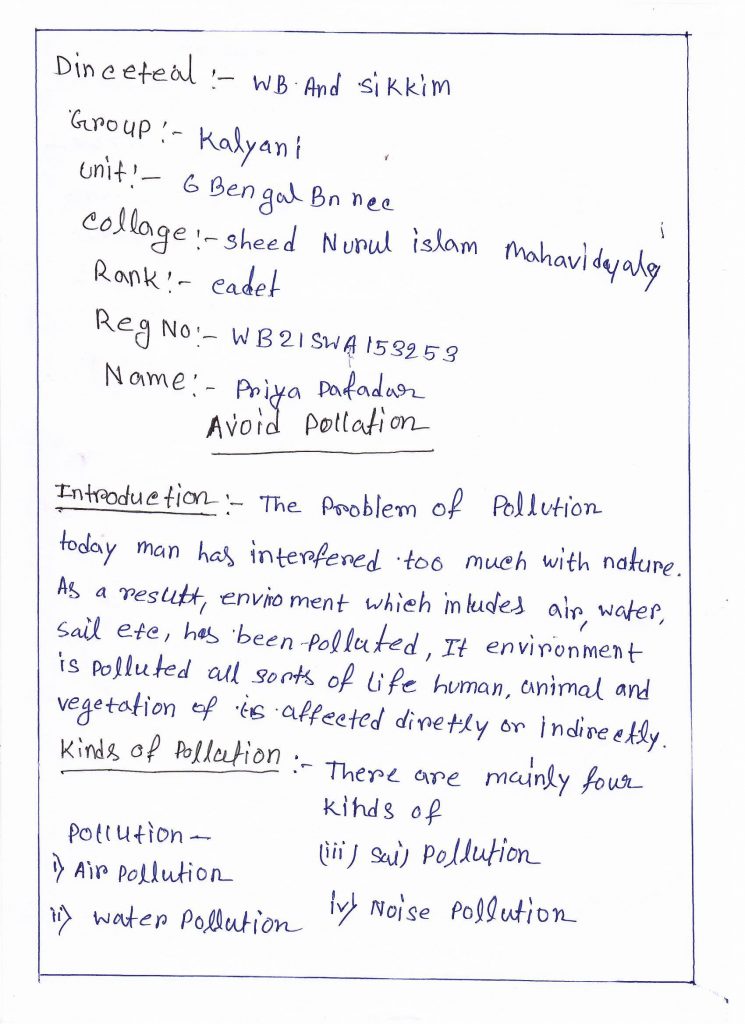 Dinceteal :- WB And Sikkim
Group :- Kalyani
Unit :- 6 Bengal Bn ncc
Collage :- sheed Nurul islam Mahavidyalaj
Rank :- cadet
Reg No :- WB21SWA153253
Name :- Priya Dafadar
Avoid pollation
Introduction :- The Problem of Pollution
today man has interfered too much with nature.
As a result, enviroment which inludes air, water,
sail etc, has been polluted, It environment
is polluted all sorts of life human, animal and
vegetation of is affected diretly or indirectly.
Kinds of Pollution :- There are mainly four
kinds of
Pollution -
i) Air pollution
ii) water Pollution
(iii) Sail Pollution
iv) Noise Pollution